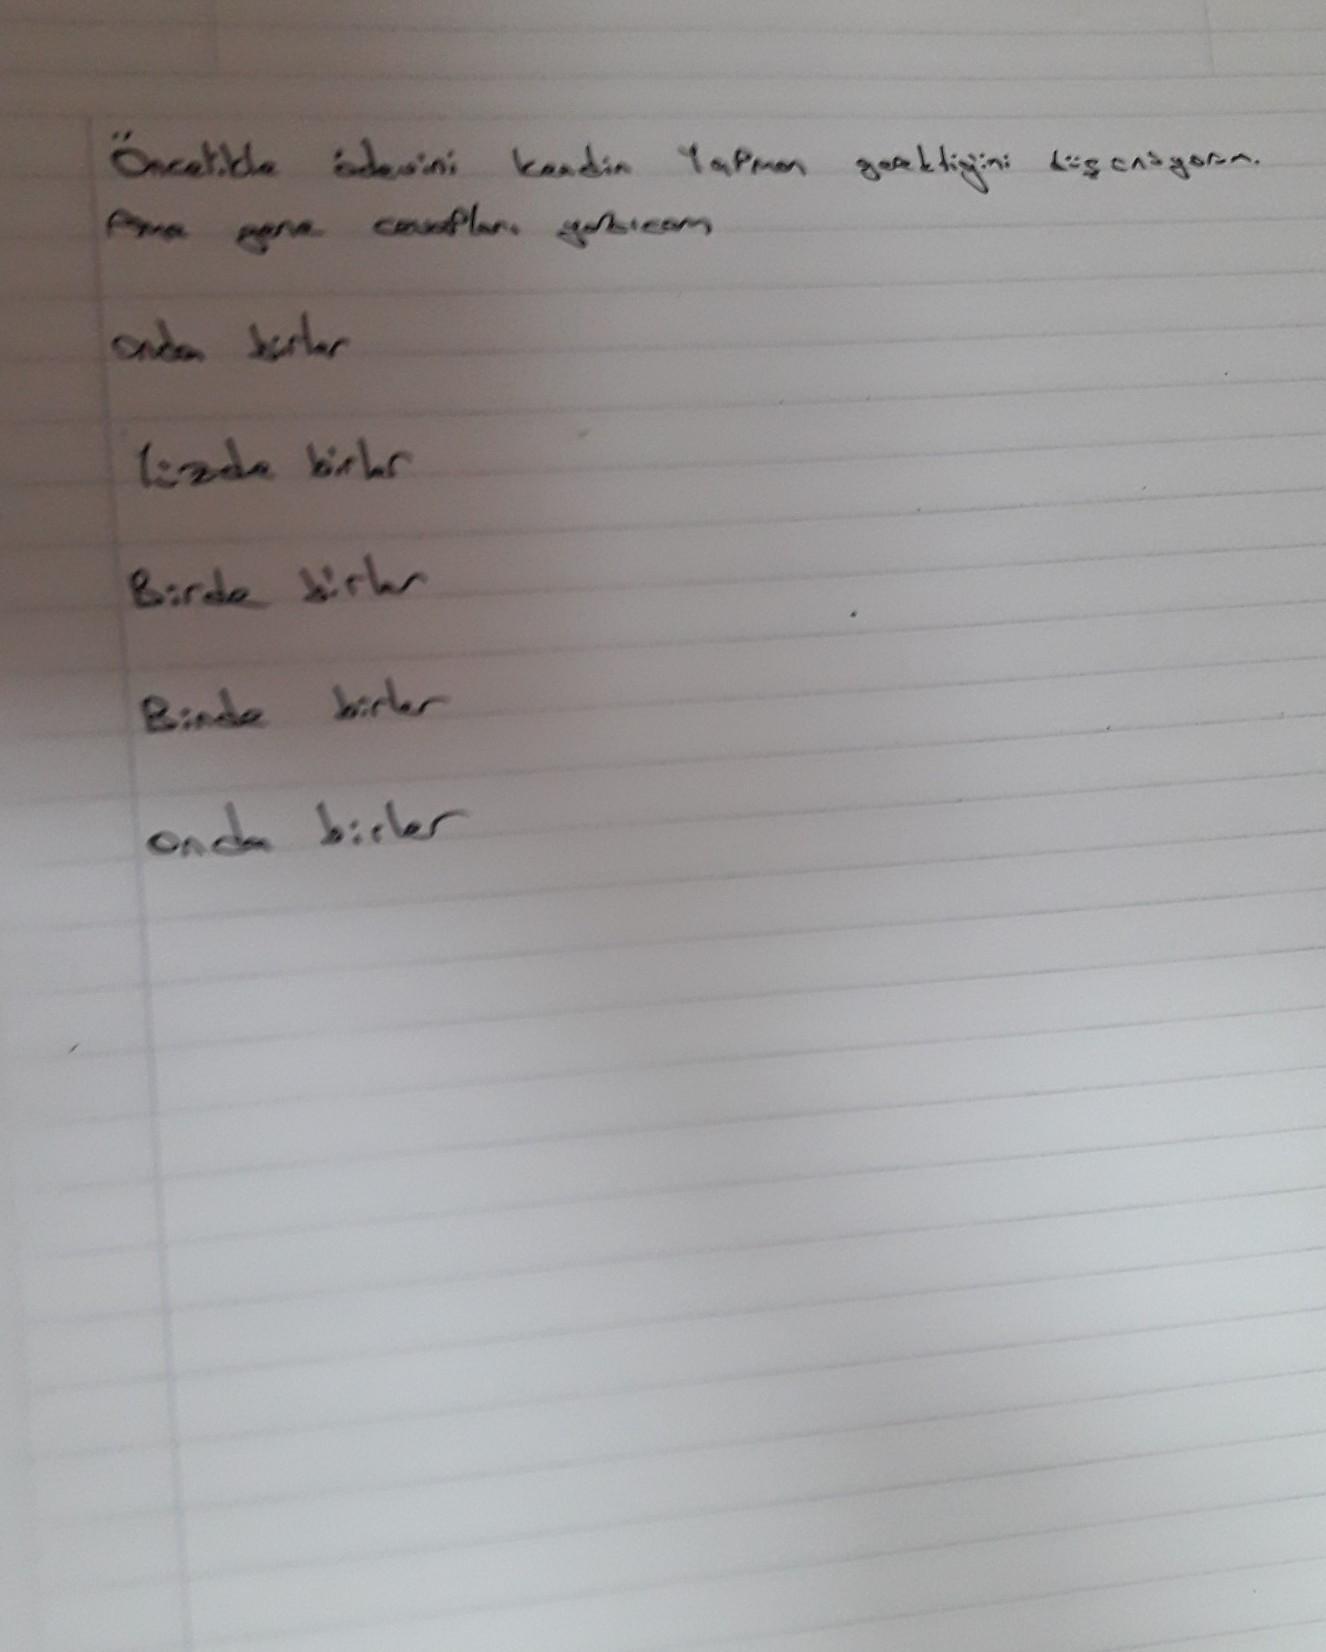 Öncelikle ödevini kendin Yapman gerektiğini düşünüyorum.
Ama gene cevapları yazıcam
onda birler
Yüzde birler
Birde birler
Binde birler
onda birler